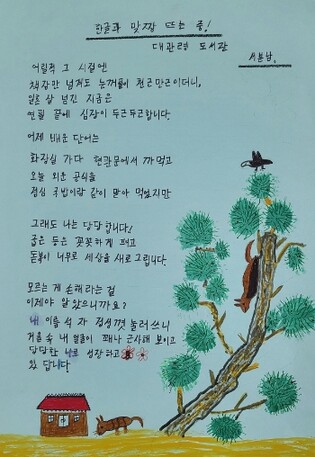 한글과 맞짱 뜨는 중!
대관령 도서관
서분남.
어릴적 그 시절엔
책장만 넘겨도 눈꺼풀이 천근만근이더니,
일흔 살 넘긴 지금은
연필 끝에 심장이 두근두근합니다.
어제 배운 단어는
화장실 가다 현관문에서 까먹고
오늘 외운 공식들
점심 국밥이랑 같이 말아 먹었지만
그래도 나는 당당합니다!
굽은 등은 꼿꼿하게 펴고
돋보기 너머로 세상을 새로 그립니다.
모르는 게 손해라는 걸
이제야 알았으니까요?
내 이름 석 자 정성껏 눌러쓰니
거울 속 내 얼굴이 꽤나 근사해 보이고
당당한 나로 성장하고
있 답니다